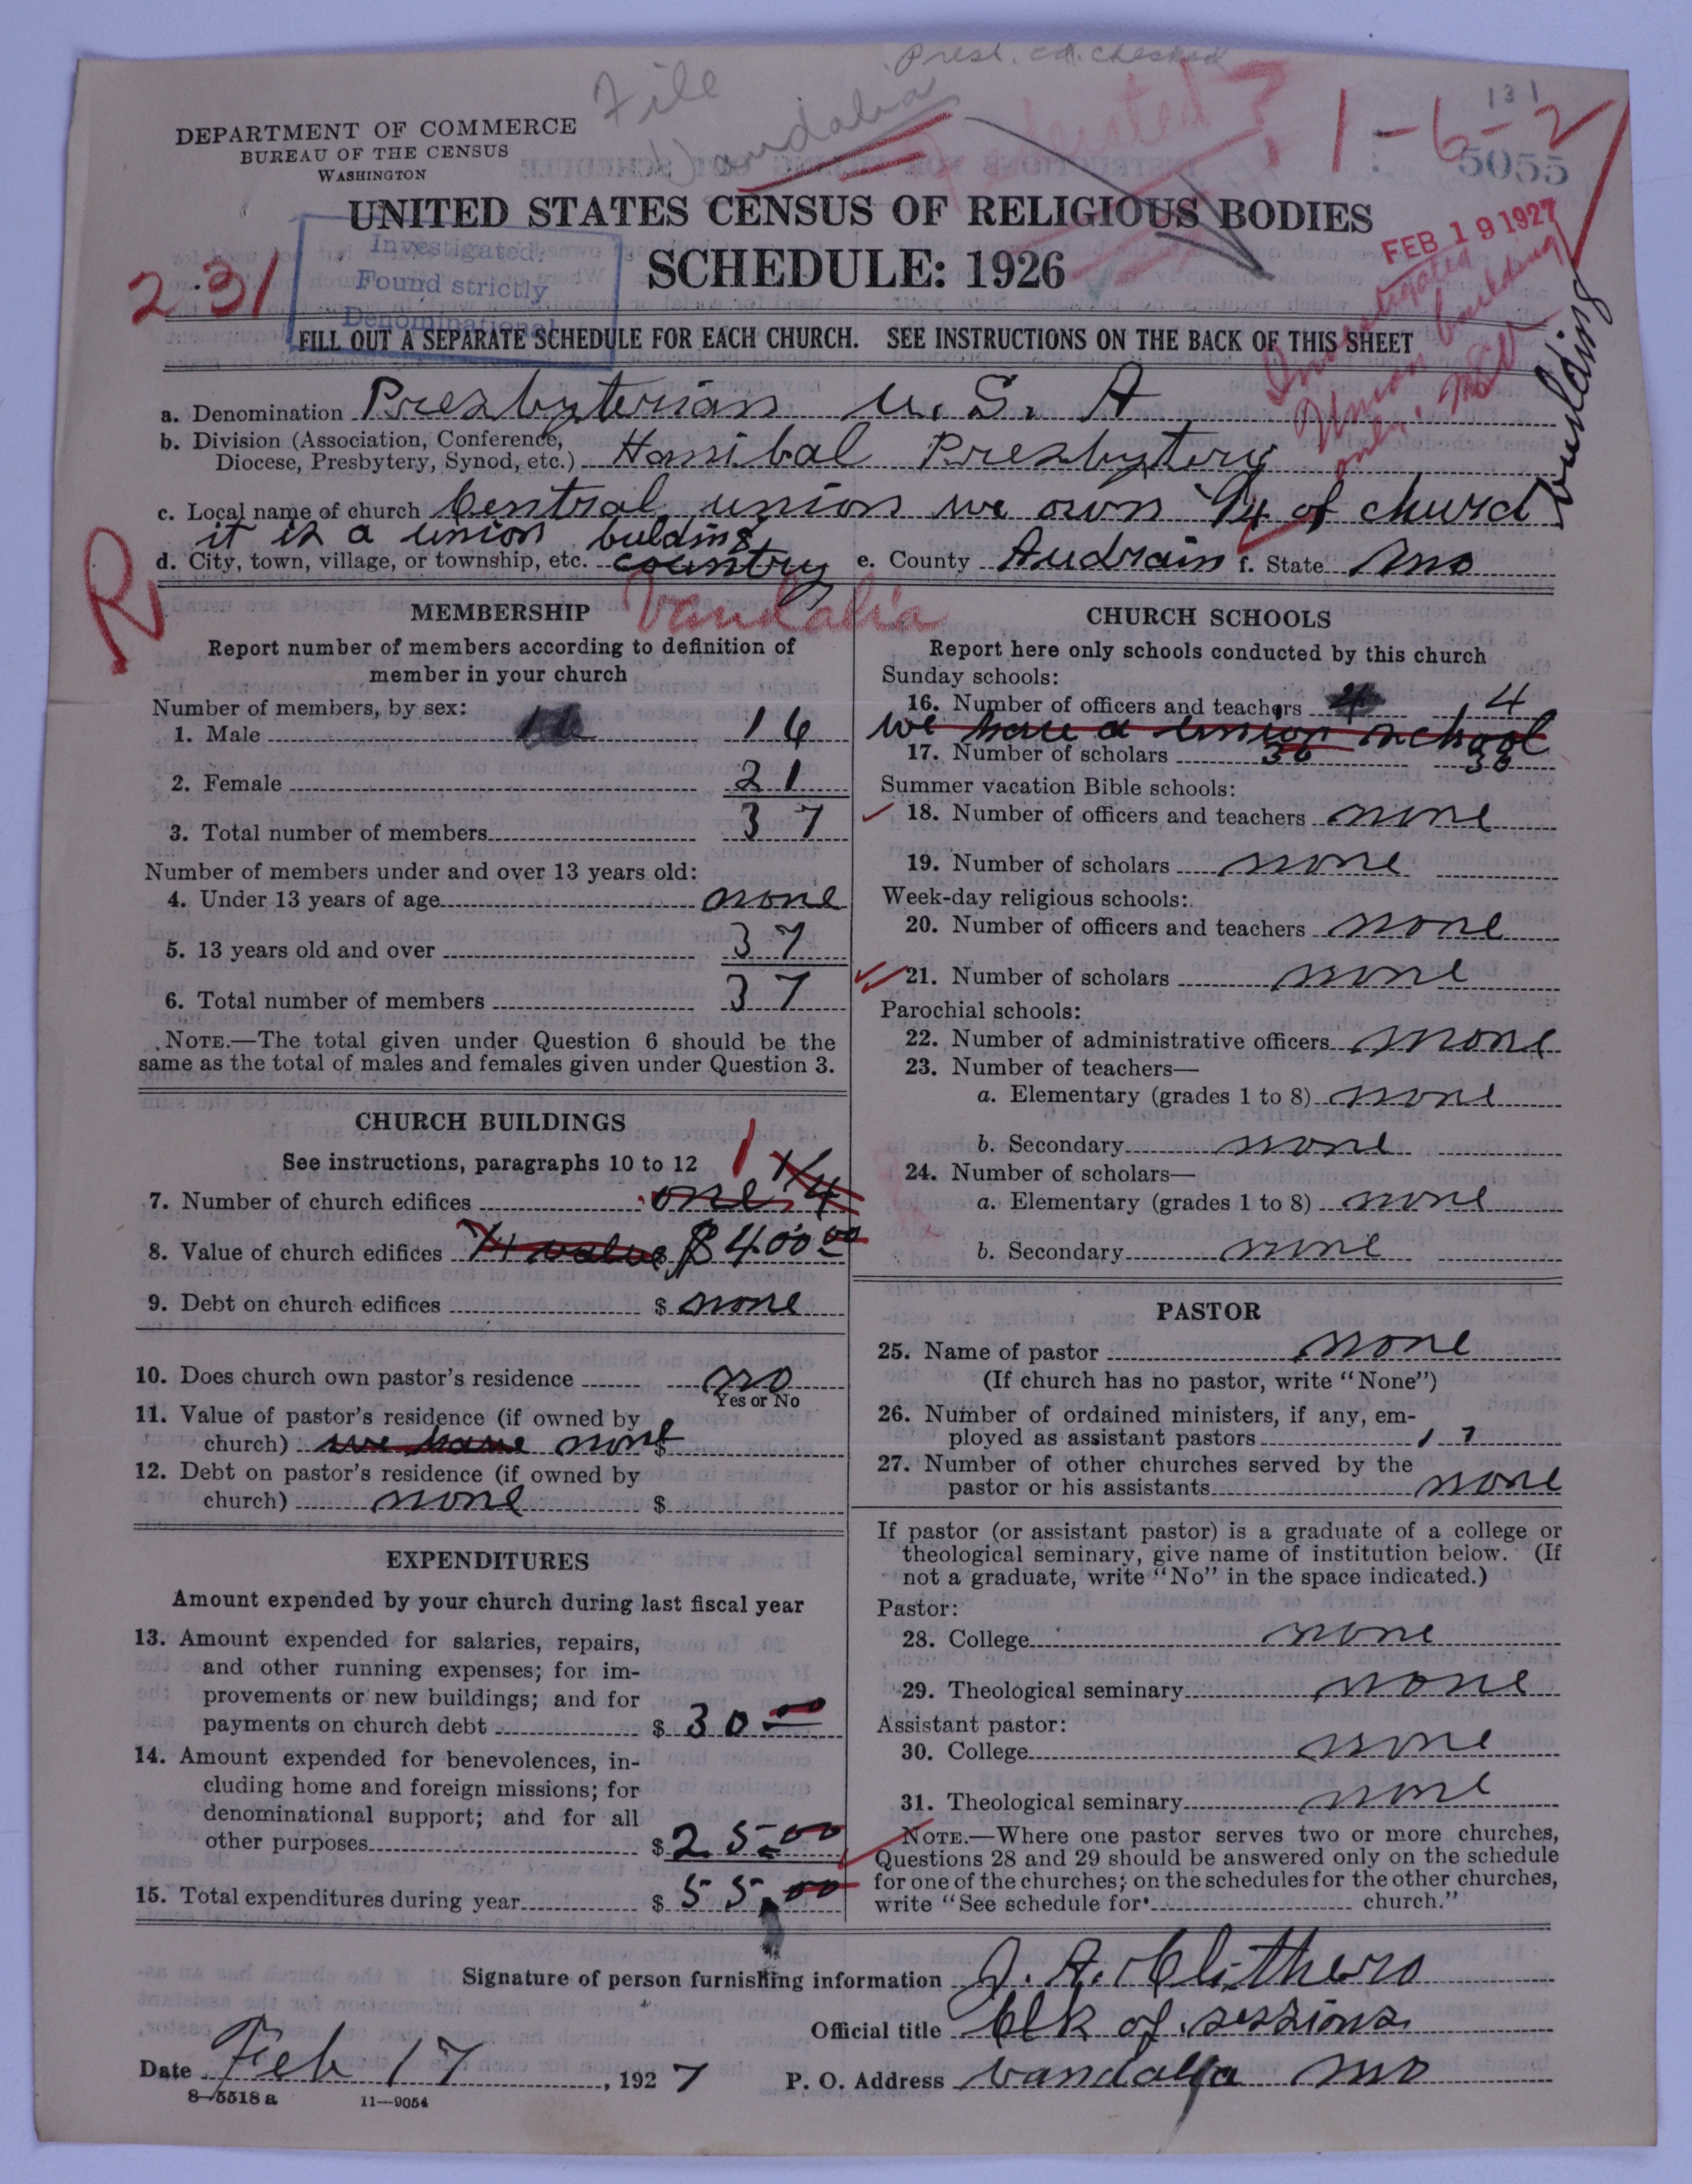 Presb. ch. checked
File
Vandalia
131
1-6-2
5055
DEPARTMENT OF COMMERCE
BUREAU OF THE CENSUS
WASHINGTON
UNITED STATES CENSUS OF RELIGIOUS BODIES
SCHEDULE: 1926
FEB 19 1927
231
Investigated.
Found strictly
Denominational
Investigated
Union building
only.
building
FILL OUT A SEPARATE SCHEDULE FOR EACH CHURCH. SEE INSTRUCTIONS ON THE BACK OF THIS SHEET
a. Denomination Presbyterian U. S. A
b. Division (Association, Conference,
Diocese, Presbytery, Synod, etc.) Hannibal Presbytery
c. Local name of church Central union we own 1/4 of church
it is a union bulding
d. City, town, village, or township, etc. country e. County Audrain f. State Mo
R
Vandalia
MEMBERSHIP
Report number of members according to definition of
member in your church
Number of members, by sex:
1. Male 16
2. Female 21
3. Total number of members 37
Number of members under and over 13 years old:
4. Under 13 years of age none
5. 13 years old and over 37
6. Total number of members 37
NOTE.—The total given under Question 6 should be the
same as the total of males and females given under Question 3.
CHURCH BUILDINGS
See instructions, paragraphs 10 to 12
7. Number of church edifices one 1/4 1
8. Value of church edifices 1/4 value $400.00
9. Debt on church edifices $ none
10. Does church own pastor's residence no
Yes or No
11. Value of pastor's residence (if owned by
church) we have none $
12. Debt on pastor's residence (if owned by
church) none $
EXPENDITURES
Amount expended by your church during last fiscal year
13. Amount expended for salaries, repairs,
and other running expenses; for im-
provements or new buildings; and for
payments on church debt $ 30 00
14. Amount expended for benevolences, in-
cluding home and foreign missions; for
denominational support; and for all
other purposes $ 25.00
15. Total expenditures during year $ 55.00
CHURCH SCHOOLS
Report here only schools conducted by this church
Sunday schools:
16. Number of officers and teachers 4 4
we have a union school
17. Number of scholars 36 36
Summer vacation Bible schools:
18. Number of officers and teachers none
19. Number of scholars none
Week-day religious schools:
20. Number of officers and teachers none
21. Number of scholars none
Parochial schools:
22. Number of administrative officers none
23. Number of teachers—
a. Elementary (grades 1 to 8) none
b. Secondary none
24. Number of scholars—
a. Elementary (grades 1 to 8) none
b. Secondary none
PASTOR
25. Name of pastor none
(If church has no pastor, write "None")
26. Number of ordained ministers, if any, em-
ployed as assistant pastors
27. Number of other churches served by the
pastor or his assistants none
If pastor (or assistant pastor) is a graduate of a college or
theological seminary, give name of institution below. (If
not a graduate, write "No" in the space indicated.)
Pastor:
28. College none
29. Theological seminary none
Assistant pastor:
30. College none
31. Theological seminary none
NOTE.—Where one pastor serves two or more churches,
Questions 28 and 29 should be answered only on the schedule
for one of the churches; on the schedules for the other churches,
write "See schedule for church."
Signature of person furnishing information J. A. Clithero
Official title Clk of sessions
Date Feb 17, 1927 P. O. Address Vandalia Mo
8—5518 a 11—9054